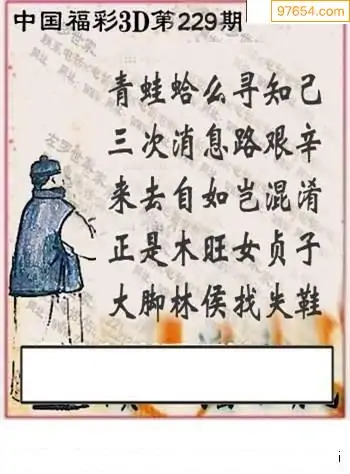 97654.com
中国福彩3D第229期
青蛙蛤么寻知己
三次消息路艰辛
来去自如岂混淆
正是木旺女贞子
大脚林侯找失鞋
i